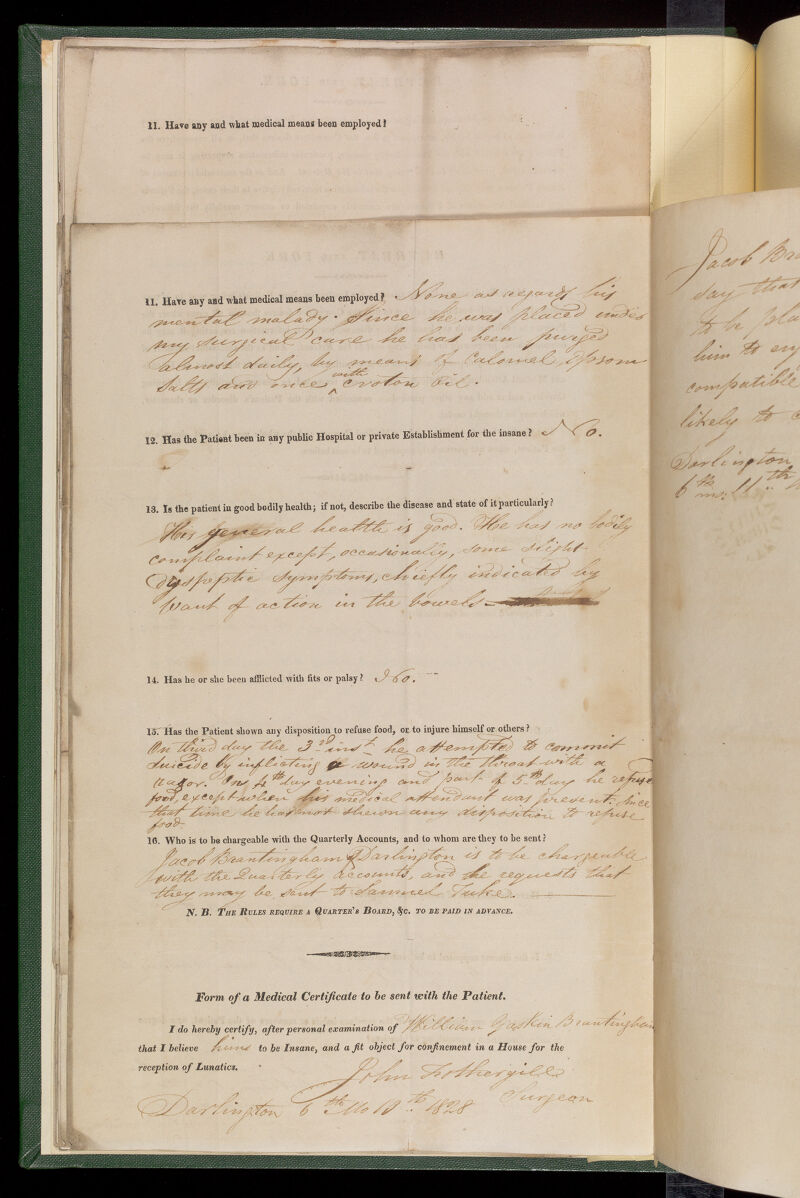 11. Have any and what medical means been employed?
11. Have any and what medical means been employed? None as regards his
mental malady. Since he was placed under
my surgical care he has been purged
almost daily, by means of Calomel, Epsom
Salts and once with Croton Oil.
12. Has the Patient been in any public Hospital or private Establishment for the insane? No.
13. Is the patient in good bodily health; if not, describe the disease and state of it particularly?
His general health is good. He has no bodily
complaint except, occasionally, some slight
dyspeptic symptoms, chiefly indicated by
want of action in the bowels
14. Has he or she been afflicted with fits or palsy? No.
15. Has the Patient shown any disposition to refuse food, or to injure himself or others?
On third day the 3rd inst. he attempted to commit
suicide by inflicting a wound in the throat with a
razor. On 4th day evening and part of 5th day he refused
food, except when his medical attendant was present. Since
that time he has not shewn any disposition to refuse
food.
16. Who is to be chargeable with the Quarterly Accounts, and to whom are they to be sent?
Jacob Brantingham of Darlington is to be chargeable
with the Quarterly accounts, and he requests that
they may be sent to Samuel Tuke.
N. B. The Rules require a Quarter's Board, &c. to be paid in advance.
Form of a Medical Certificate to be sent with the Patient.
I do hereby certify, after personal examination of William Gaskin Brantingham
that I believe him to be Insane, and a fit object for confinement in a House for the
reception of Lunatics.
John Fothergill
Surgeon
Darlington 6th Mo 10th 1828
Jacob Bra
day that
to be pla
him to enj
compatible
likely to
Darlington
6th mo. 11th